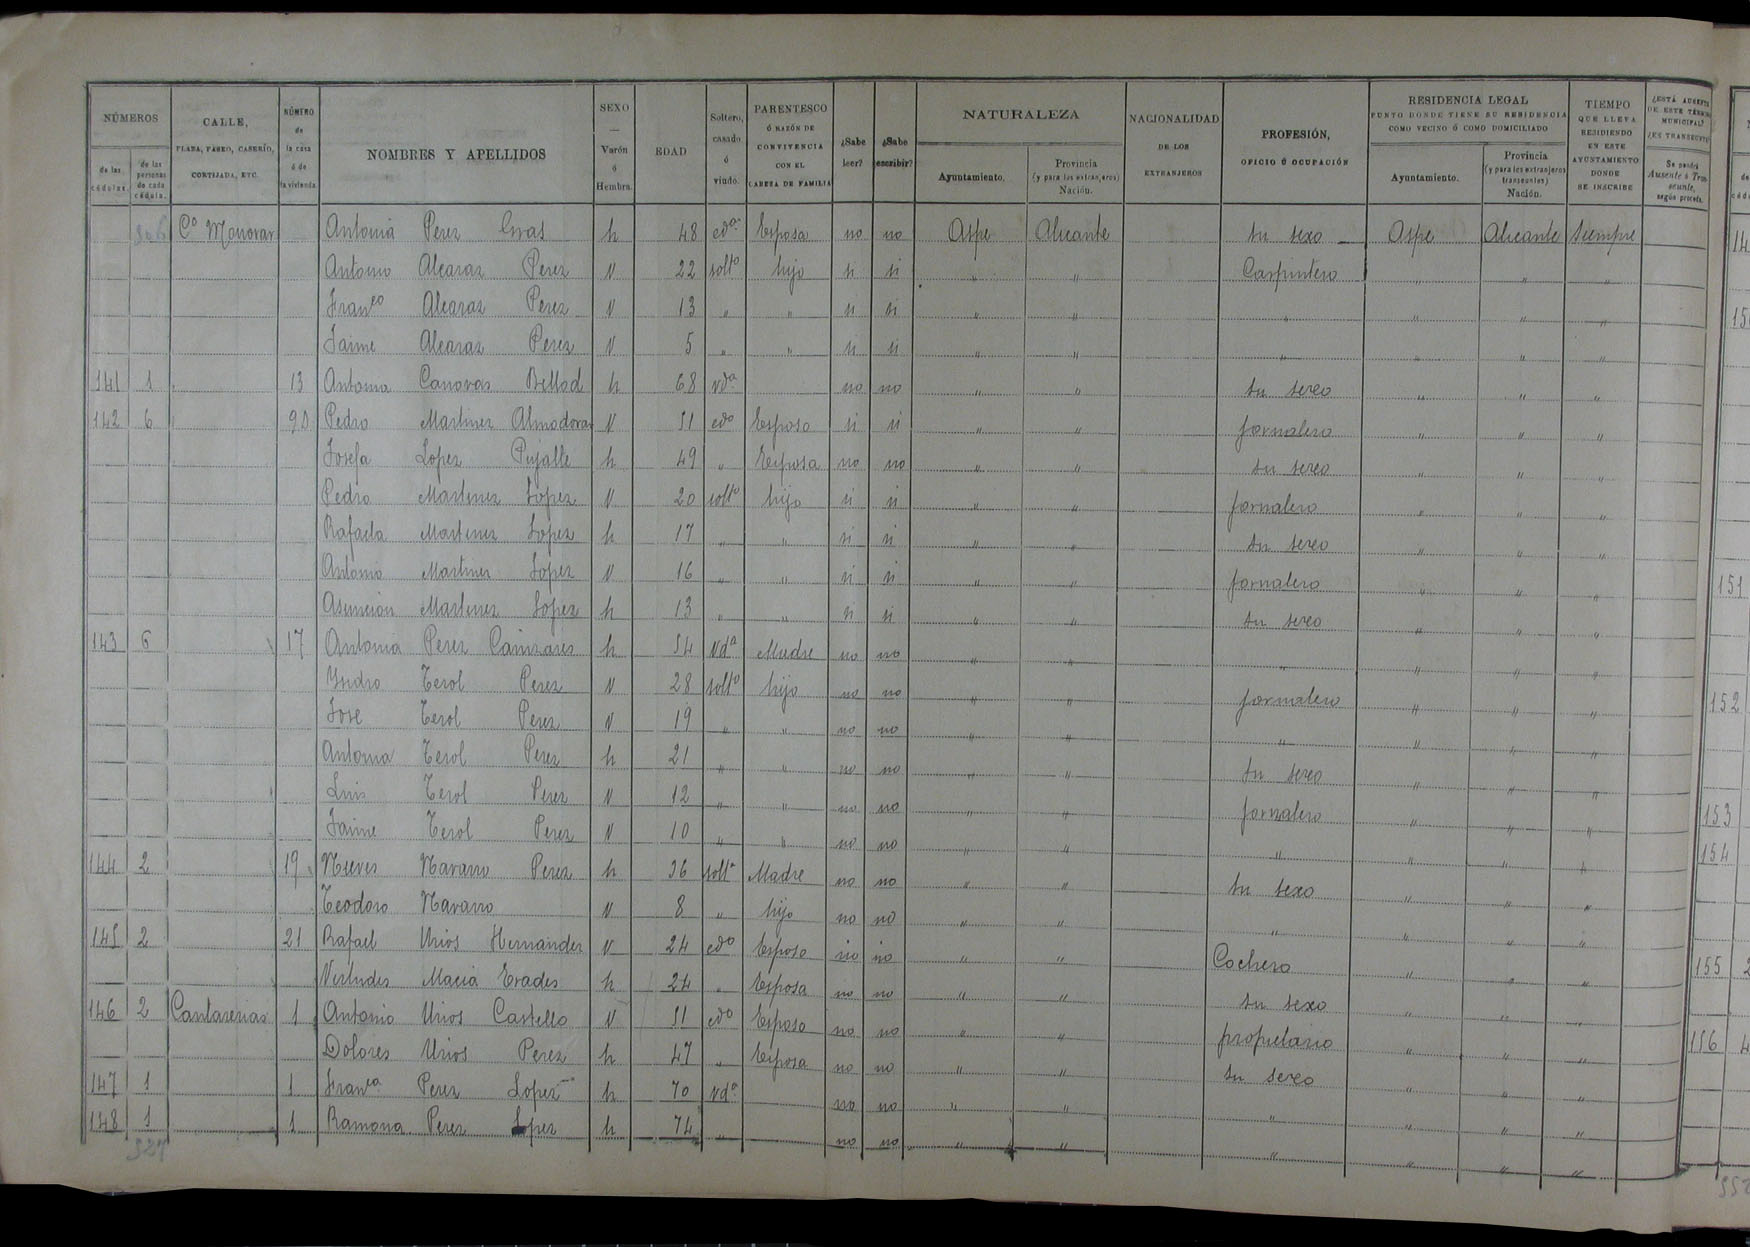 NÚMEROS | CALLE, PLAZA, PASEO, CASERÍO, CORTIJADA, ETC. | NÚMERO de la casa ó de la vivienda. | NOMBRES Y APELLIDOS | SEXO — Varón ó Hembra. | EDAD | Soltero, casado ó viudo. | PARENTESCO Ó RAZÓN DE CONVIVENCIA CON EL CABEZA DE FAMILIA | ¿Sabe leer? | ¿Sabe escribir? | NATURALEZA | NACIONALIDAD DE LOS EXTRANJEROS | PROFESIÓN, OFICIO Ú OCUPACIÓN | RESIDENCIA LEGAL PUNTO DONDE TIENE SU RESIDENCIA COMO VECINO Ó COMO DOMICILIADO | TIEMPO QUE LLEVA RESIDIENDO EN ESTE AYUNTAMIENTO DONDE SE INSCRIBE | ¿ESTÁ AUSENTE DE ESTE TÉRMINO MUNICIPAL? ¿ES TRANSEUNTE?
de las cédulas. | de las personas de cada cédula. | Ayuntamiento. | Provincia (y para los extranjeros) Nación. | Ayuntamiento. | Provincia (y para los extranjeros transeuntes) Nación. | Se pondrá Ausente ó Transeunte, según proceda.
Cº Monovar Antonia Perez Gras h 48 cdª Esposa no no Aspe Alicante su sexo Aspe Alicante Siempre
Antonio Alcaraz Perez V 22 soltº hijo si si " " Carpintero " " "
Franco Alcaraz Perez V 13 " " si si " " " " " "
Jaime Alcaraz Perez V 5 " " si si " " " " " "
141 1 " 13 Antonia Canovas Bellod h 68 vdª no no " " su sexo " " "
142 6 " Pedro Martinez Almodovar V 51 cdo Esposo si si " " jornalero " " "
Josefa Lopez Pujalte h 49 " Esposa no no " " su sexo " " "
Pedro Martinez Lopez V 20 soltº hijo si si " " jornalero " " "
Rafaela Martinez Lopez h 17 " " si si " " su sexo " " "
Antonio Martinez Lopez V 16 " " si si " " jornalero " " "
Asuncion Martinez Lopez h 13 " " si si " " su sexo " " "
143 6 17 Antonia Perez Cañizares h 54 Vdª Madre no no " " " " " "
Ysidro Terol Perez V 28 soltº hijo no no " " jornalero " " "
Jose Terol Perez V 19 " " no no " " " " " "
Antonia Terol Perez h 21 " " no no " " su sexo " " "
Luis Terol Perez V 12 " " no no " " jornalero " " "
Jaime Terol Perez V 10 " " no no " " " " " "
144 2 19 Nieves Navarro Perez h 36 soltª Madre no no " " su sexo " " "
Teodoro Navarro V 8 " hijo no no " " " " " "
145 2 21 Rafael Urios Hernandez V 24 cdo Esposo no no " " Cochero " " "
Virtudes Macia Erades h 24 " Esposa no no " " su sexo " " "
146 2 Cantarerias 1 Antonio Urios Castello V 51 cdo Esposo no no " " propietario " " "
Dolores Urios Perez h 47 " Esposa no no " " su sexo " " "
147 1 1 Franca Perez Lopez h 70 vdª no no " " " " " "
148 1 1 Ramona Perez Lopez h 74 " no no " " " " " "
151
152
153
154
155 2
156 4